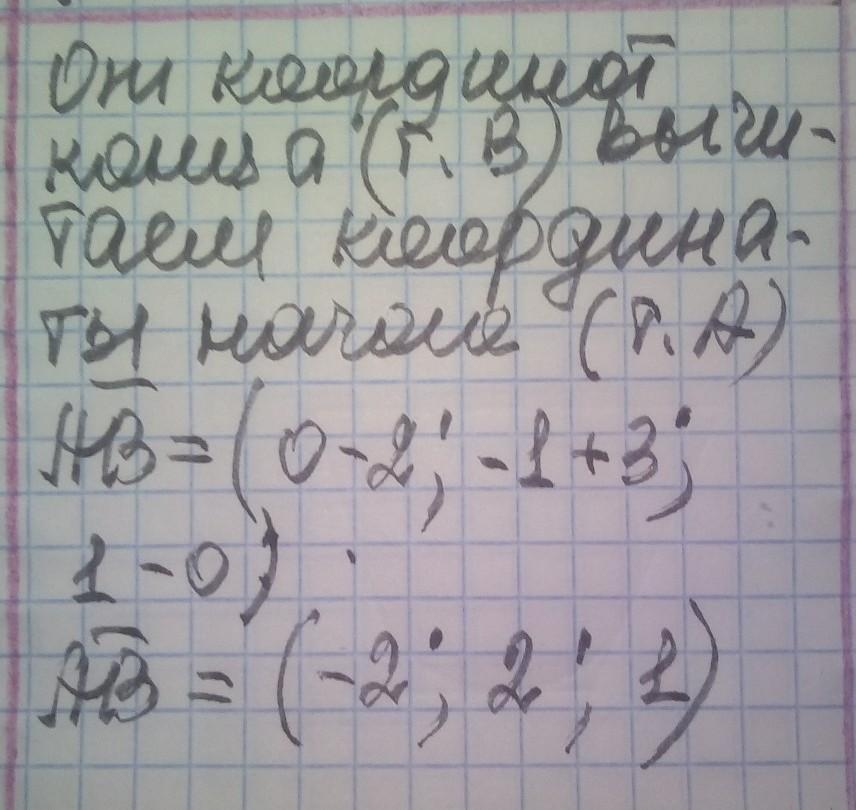 От координат
конца (т. В) вычи-
таем координа-
ты начала (т. А)
AB = (0-2; -1+3;
1-0)
AB = (-2; 2; 1)